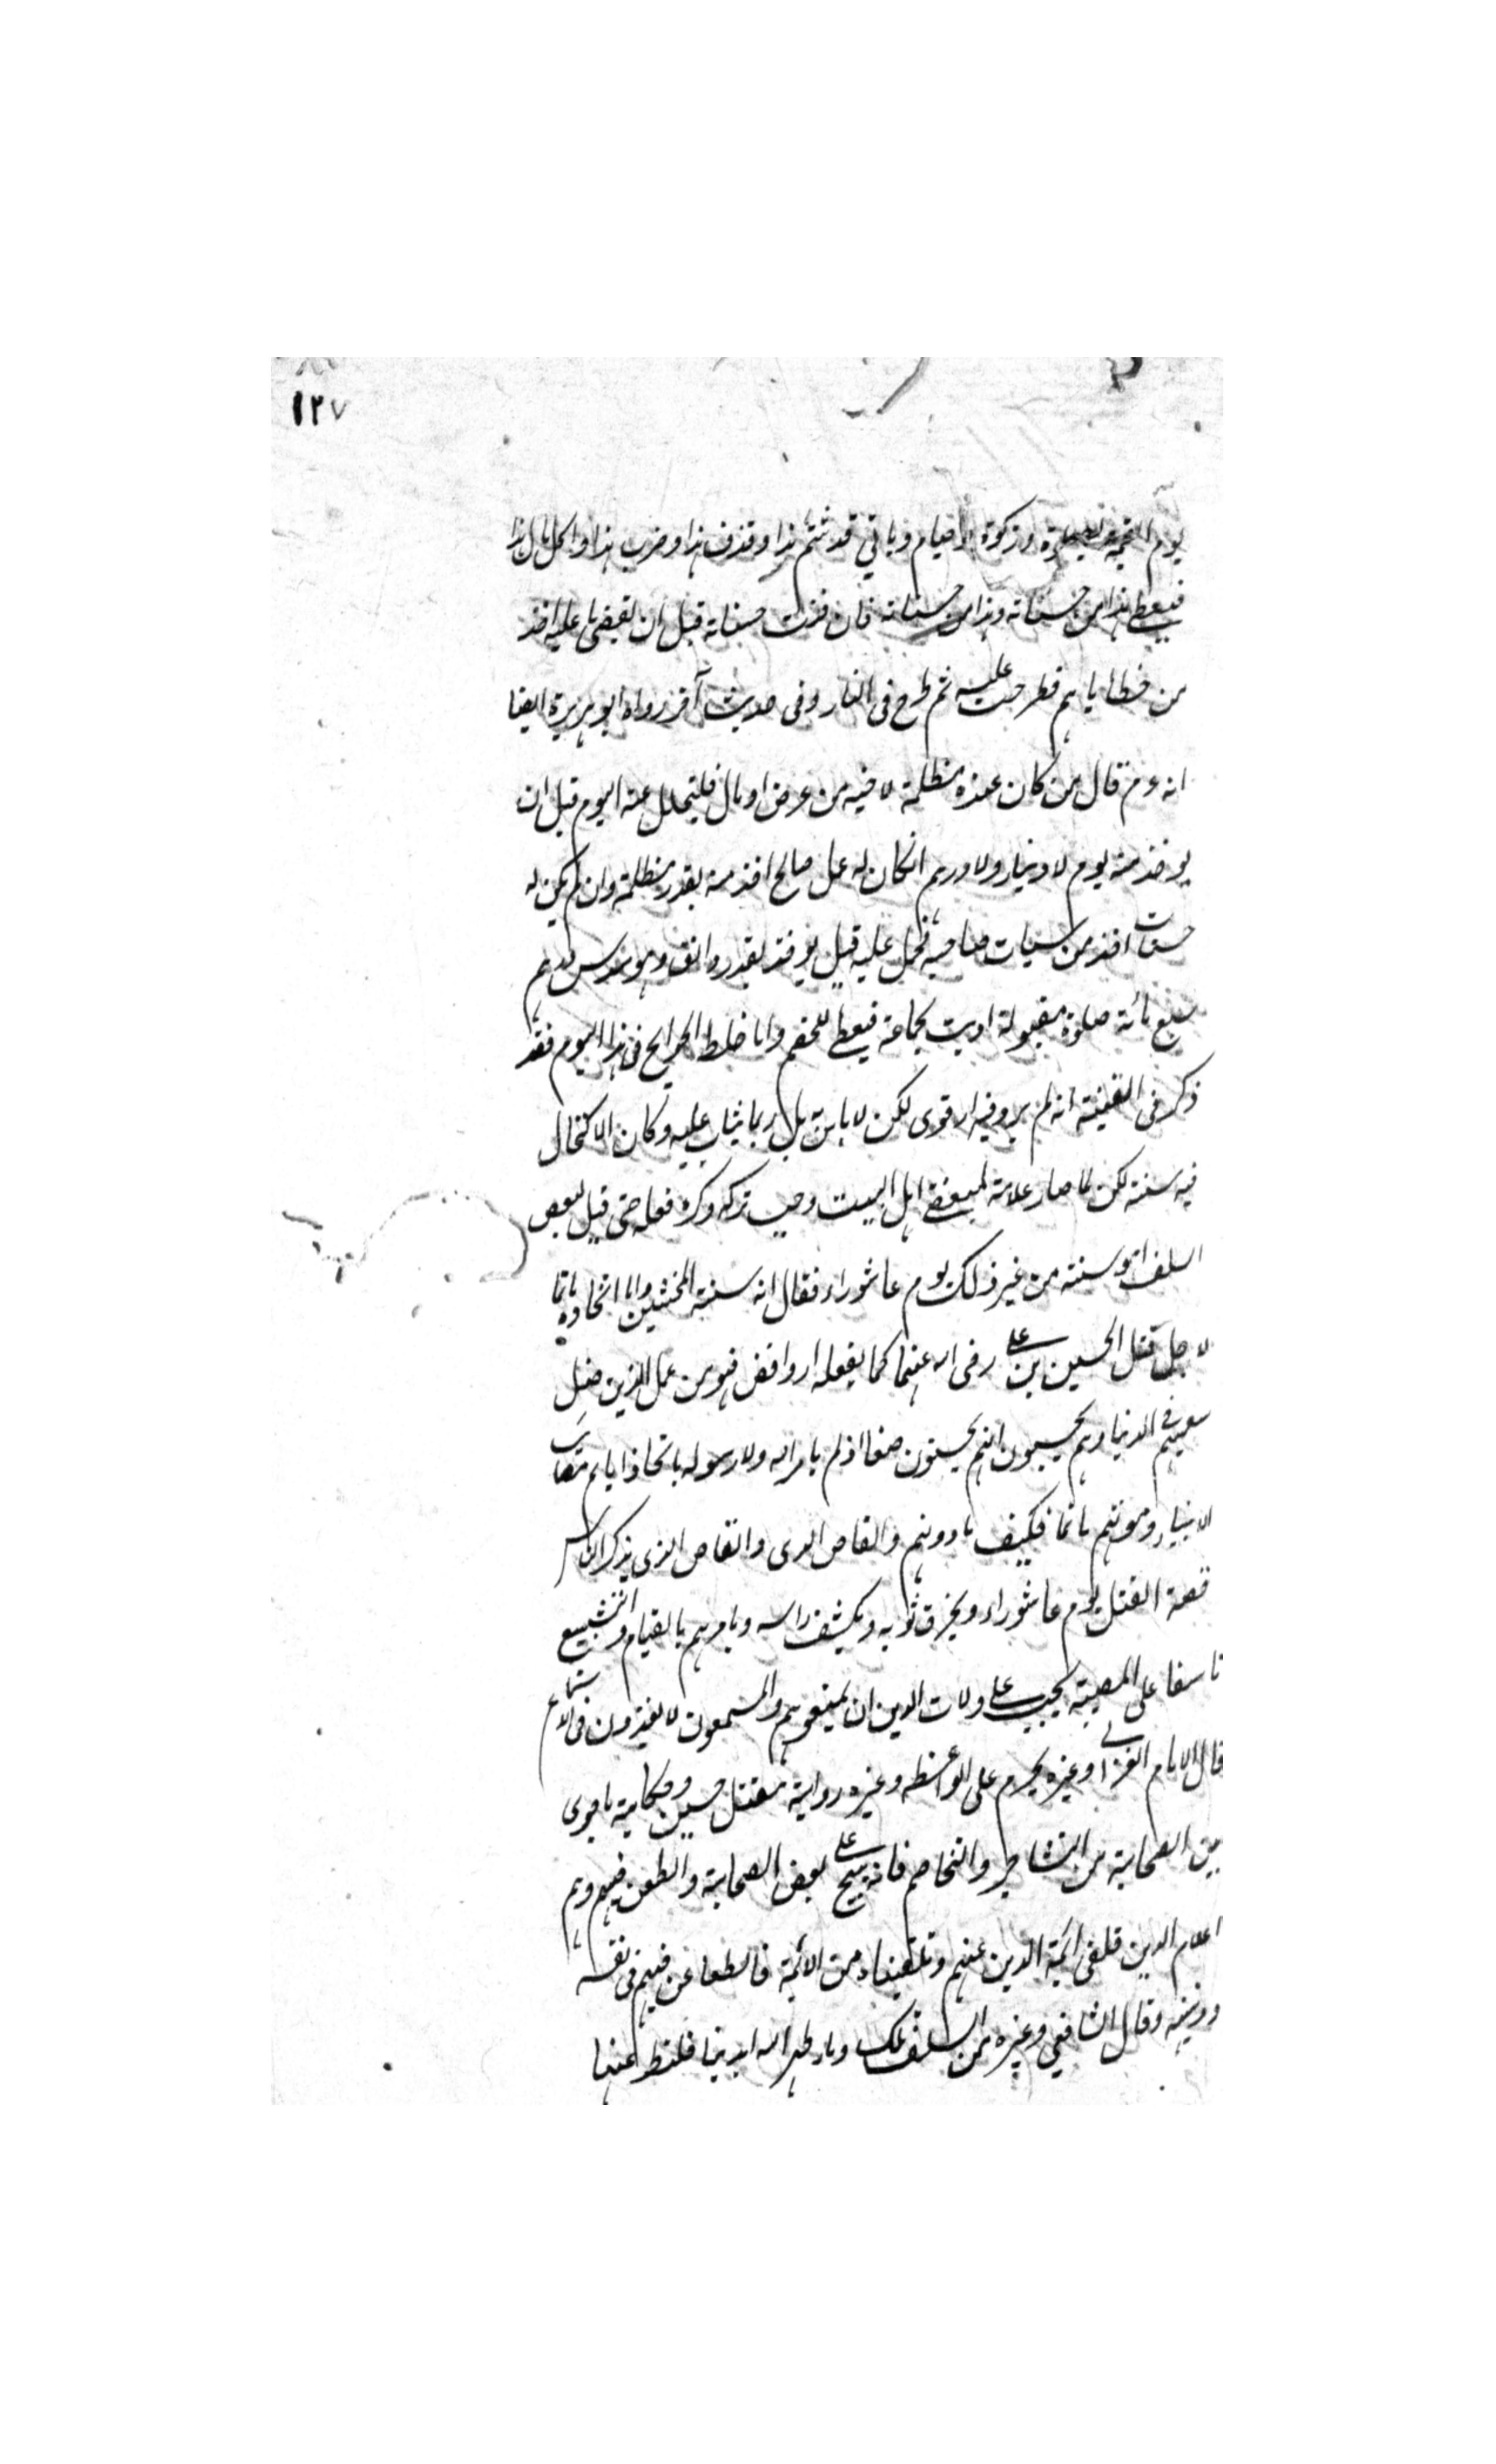 ١٢٧
يوم القيمة بصلوة وزكوة وصيام وياتي قد شتم هذا وقذف هذا وضرب هذا واكل مال هذا
فيعطى هذا من حسناته وهذا من حسناته فان فنيت حسناته قبل ان يقضى ما عليه اخذ
من خطاياهم فطرحت عليه ثم طرح فى النار وفى حديث آخر رواه ابو هريرة ايضا
انه عم قال من كان عنده مظلمة لاخيه من عرض او مال فليتحلل منه اليوم قبل ان
يوخذ منه يوم لا دينار ولا درهم انكان له عمل صالح اخذ منه بقدر مظلمة وان لم يكن له
حسنات اخذ من سيات صاحبه فحمل عليه قيل يوخذ بقدر دانق وهو سدس درهم
سبع مائة صلوة مقبولة اديت بجماعة فيعطى للخصم واما خلط الحرايج فى هذا اليوم فقد
ذكر فى القنية انه لم يرو فيه اثر قوى لكن لا باس به بل ربما يثاب عليه وكان الاكتحال
فيه سنة لكن لما صار علامة لمبغضى اهل البيت وجب تركه وكره فعله حتى قيل لبعض
السلف اهو سنة من غير ذلك يوم عاشوراء فقال انه سنة المخنثين واما اتخاذه ماتما
لاجل قتل الحسين بن على رضى الله عنهما كما يفعله الروافض فهو من عمل الذين ضل
سعيهم فى الدنيا وهم يحسبون انهم يحسنون صنعا اذ لم يامر الله ولا رسوله باتخاذ ايام مصائب
الانبياء وموتهم ماتما فكيف ما دونهم والقاص الدى والقاص الذى يذكر الناس
قصة القتل يوم عاشوراء ويخرق ثوبه ويكشف راسه ويامرهم بالقيام والتشييع
تاسفا على المصيبة يجب على ولات الدين ان يمنعوهم والمستمعون لا يعذرون فى الاستماع
قال الامام الغزالى وغيره يحرم على الواعظ وغيره رواية مقتل حسين وحكاية ما جرى
بين الصحابة من التشاجر والتخاصم فانه يهيج على بغض الصحابة والطعن فيهم وهم
اعلام الدين تلقى ائمة الدين عنهم وتلقيناه من الائمة فالطاعن فيهم فى نفسه
ودينه وقال الشافعى وغيره من السلف تلك دماء طهر الله ايدينا فلنطهر عنها